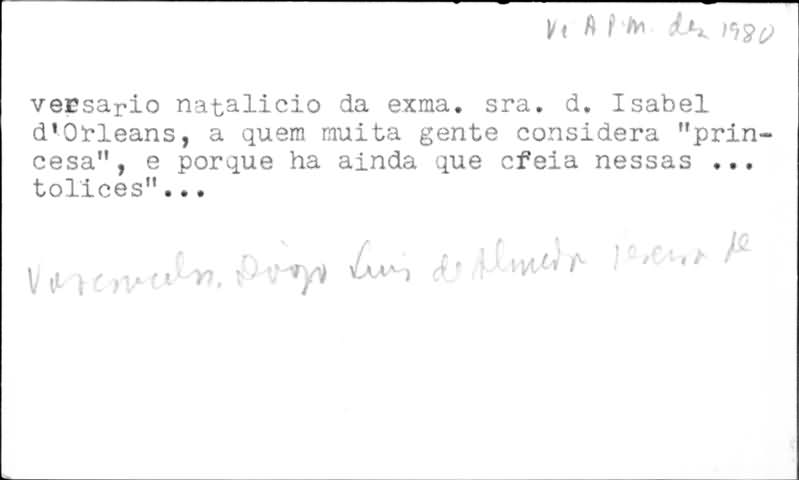 Vi A P.M. dez 1980
versario natalicio da exma. sra. d. Isabel
d'Orleans, a quem muita gente considera "prin-
cesa", e porque ha ainda que creia nessas ...
tolices"...
Vasconcelos, Diogo Luis de Almeida Pereira de